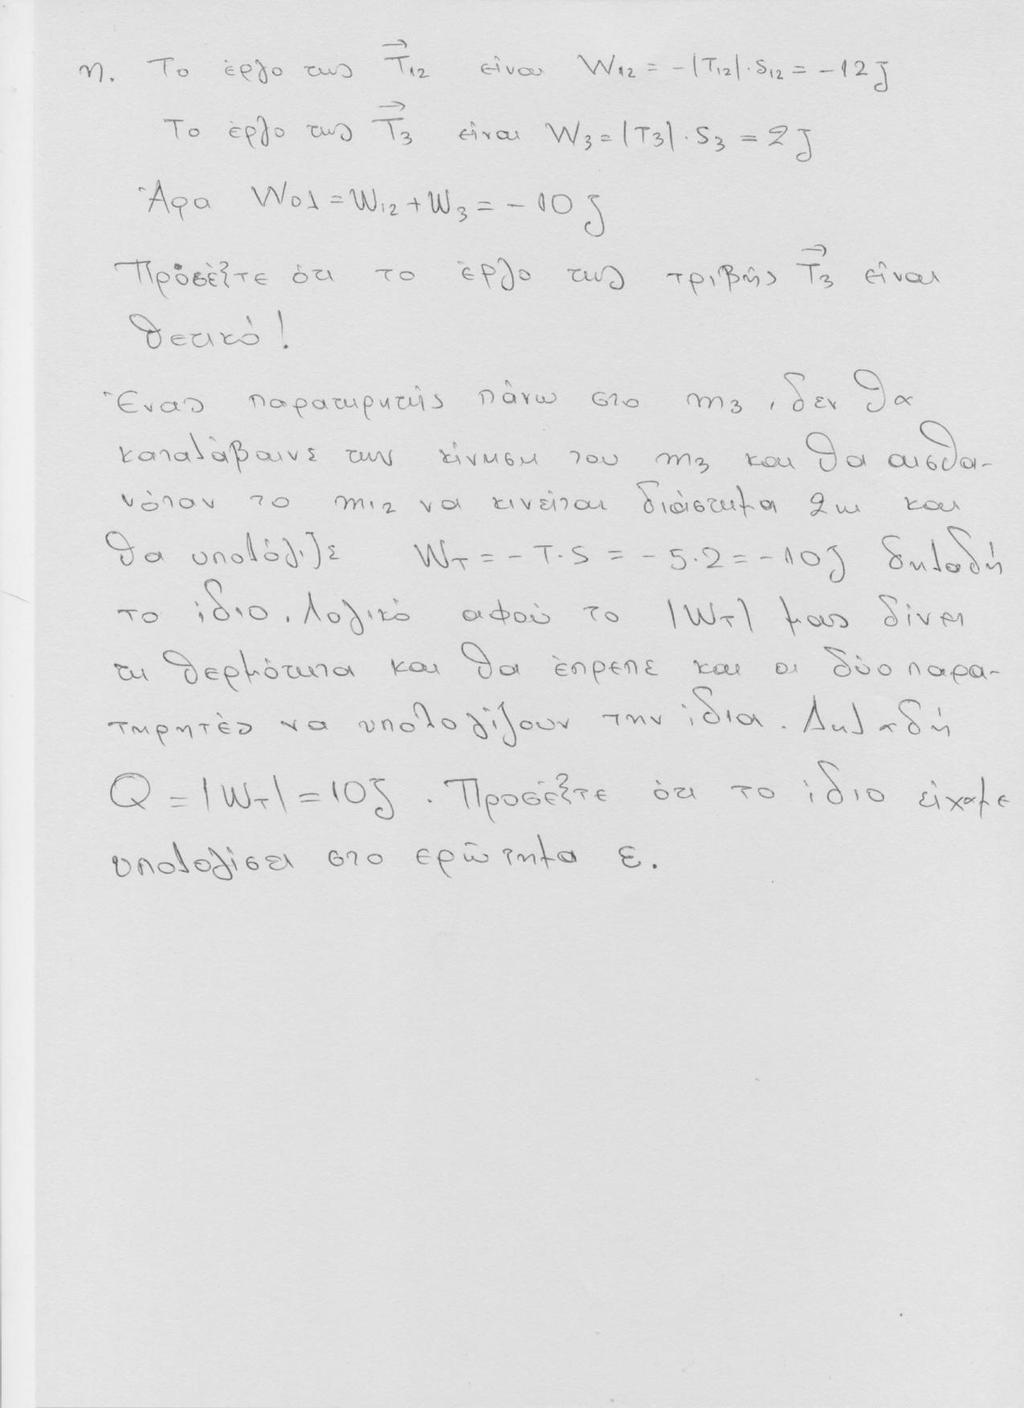 η. Το έργο της T⃗₁₂ είναι W₁₂ = -|T₁₂|·S₁₂ = -12J
Το έργο της T⃗₃ είναι W₃ = |T₃|·S₃ = 2J
Άρα Wολ = W₁₂ + W₃ = -10J
Προσέξτε ότι το έργο της τριβής T⃗₃ είναι
θετικό!
Ένας παρατηρητής πάνω στο m₃, δεν θα
καταλάβαινε την κίνηση του m₃ και θα αισθα-
νόταν το m₁₂ να κινείται διάστημα 2m και
θα υπολόγιζε W_T = -T·S = -5·2 = -10J δηλαδή
το ίδιο. Λογικό αφού το |W_T| μας δίνει
τη θερμότητα και θα έπρεπε και οι δύο παρα-
τηρητές να υπολογίζουν την ίδια. Δηλαδή
Q = |W_T| = 10J. Προσέξτε ότι το ίδιο είχαμε
υπολογίσει στο ερώτημα ε.